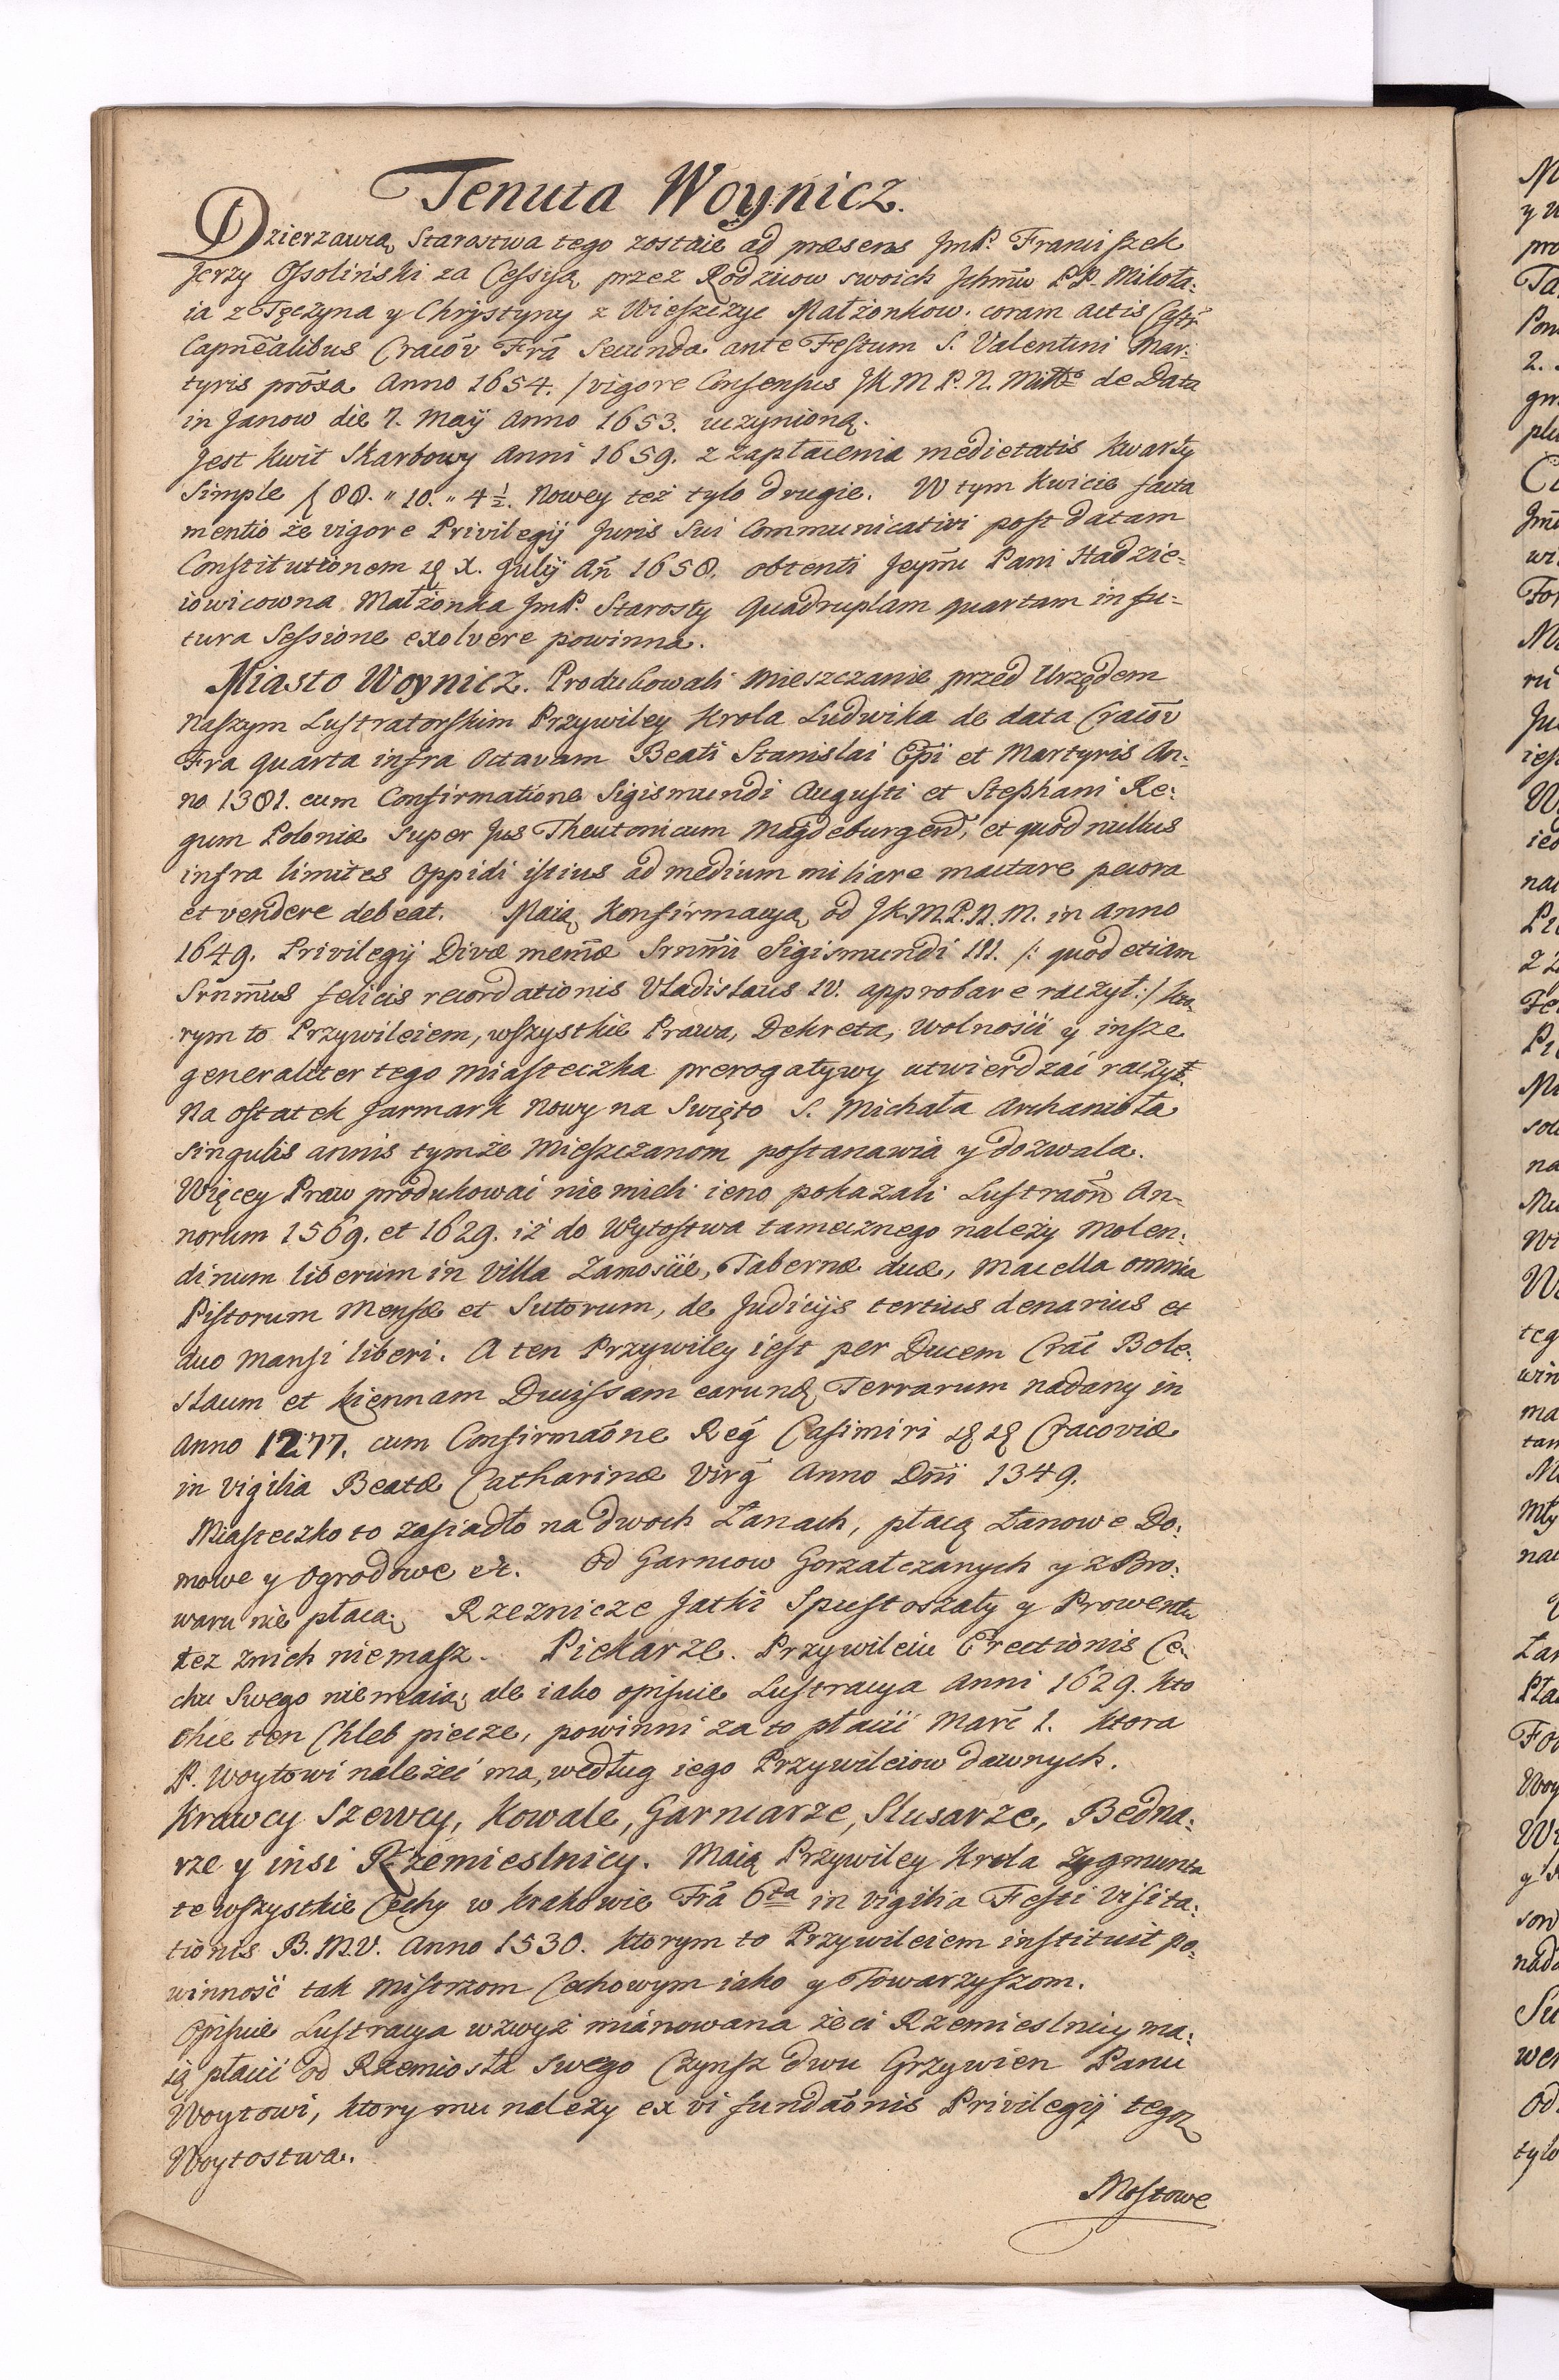 Tenuta Woynicz.
Dzierzawią Starostwa tego zostaie ad præsens JmP. Franciszek
Jerzy Ossoliński za Cessyią przez Rodzicow swoich Jchmw PP. Mikoła:
ia z Tęczyna y Chrystyny z Wieszczyc Małżonkow. coram actis Castr
Capnēalibus Cracōv Frā Secunda ante Festum S. Valentini Mar:
tyris prōxa Anno 1654. /vigore Consensus JKM P. N. Miłło de Data
in Janow die 7. Maÿ Anno 1653. uczynioną.
Jest kwit Skarbowy Anni 1659. z zapłacenia medietatis kwarty
Simple f 88. " 10. " 4½. Nowey też tylo drugie. W tym kwicie facta
mentio że vigore Privilegij Juris Sui Communicativi post datam
Constitutionem X. Julÿ An̄ 1658. obtenti Jeym̄ci Pani Hadzie=
iowicowna Małżonka JmP. Starosty Quadruplam quartam in fu=
tura Sessione exolvere powinna.
Miasto Woynicz. Produkowali Mieszczanie przed Urzędem
Naszym Lustratorskim Przywiley Krola Ludwika de data Cracōv
Fra quarta infra Octavam Beati Stanislai Ep̄i et Martyris An:
no 1381. cum Confirmatione Sigismundi Augusti et Stephani Re:
gum Poloniæ Super Jus Theutonicum Magdeburgen̄, et quod nullus
infra limites Oppidi istius ad medium miliare mactare pecora
et vendere debeat. Maią Konfirmacyą od JK.M.P.N.M. in Anno
1649. Privilegij Divæ mem̄æ Srnm̄i Sigismundi III. /: quod etiam
Srnm̄us felicis recordationis Vladislaus IV. approbare raczył:/ kto
rym to Przywileiem, wszystkie Prawa, Dekreta, Wolności y insze
generaliter tego Miasteczka prerogatywy utwierdzać raczył.
Na ostatek Jarmark Nowy na Swięto S. Michała Archanioła
singulis annis tymże Mieszczanom postanawia y dozwala.
Więcey Praw produkować nie mieli ieno pokazali Lustraōn An=
norum 1569. et 1629. iż do Wytostwa tamecznego należy Molen:
dinum liberum in Villa Zamoście, Tabernæ duæ, Macella omnia
Pistorum Mensæ et Sutorum, de Judicijs tertius denarius et
duo Mansi liberi. A ten Przywiley iest per Ducem Crac̄ Bole:
slaum et Kiennam Ducissam earund Terrarum nadany in
Anno 1277. cum Confirmaōne Reg̃ Casimiri Cracoviæ
in Vigilia Beatæ Catharinæ Virg̃ Anno Dn̄i 1349.
Miasteczko to zasiadło na dwoch Łanach, płacą Łanowe Do:
mowe y Ogrodowe etc. Od Garncow Gorzałczanych y z Bro:
waru nie płacą. Rzeznicze Jatki Spustoszały y Prowentu
też znich niemasz. Piekarze. Przywileiu Erectionis Ce:
chu Swego niemaią, ale iako opisuie Lustracya Anni 1629. kto
chce ten Chleb piecze, powinni za to płacić Marc̄ 1. Ktora
P. Woytowi należeć ma, według iego Przywileiow dawnych.
Krawcy Szewcy, Kowale, Garncarze, Slusarze, Bedna:
rze y insi Rzemieslnicy. Maią Przywiley Krola Zygmunta
te wszystkie Cechy w Krakowie Frā 6ta in Vigilia Festi Visita:
tionis B.M.V. Anno 1530. ktorym to Przywileiem instituit po=
winność tak Mistrzom Cechowym iako y Towarzyszom.
Opisuie Lustracya wzwyż mianowana że ci Rzemieslnicy ma:
ią płacić od Rzemiosła Swego Czynsz dwu Grzywien Panu
Woytowi, ktory mu należy ex vi fundaōnis Privilegij tegoz
Woytostwa.
Mostowe